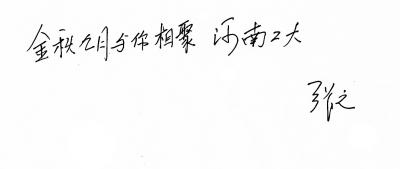 金秋九月与你相聚 河南工大
张之